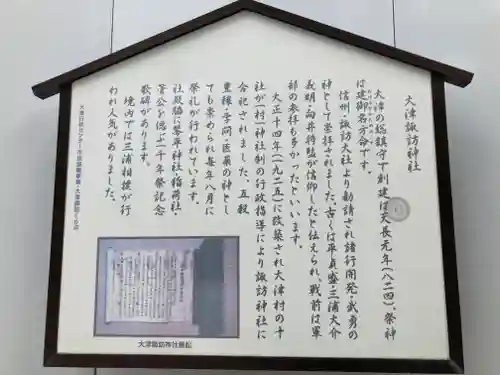 大津諏訪神社
大津の総鎮守で創建は天長元年(八二四)、祭神
は建御名方命です。
信州・諏訪大社より勧請され諸行開発・武勇の
神として崇拝されました。古くは平貞盛・三浦大介
義明・向井将監が信仰したと伝えられ、戦前は軍
部の参拝も多かったといいます。
大正十四年(一九二五)に改築され大津村の十
社が一村一神社制の行政指導により諏訪神社に
合祀されました。五穀
豊穣・学問・医薬の神とし
ても崇められ毎年八月に
祭礼が行われています。
社殿脇に琴平神社・稲荷社・
菅公を偲ぶ一千年祭記念
歌碑があります。
境内では三浦相撲が行
われ人気がありました。
大津諏訪神社